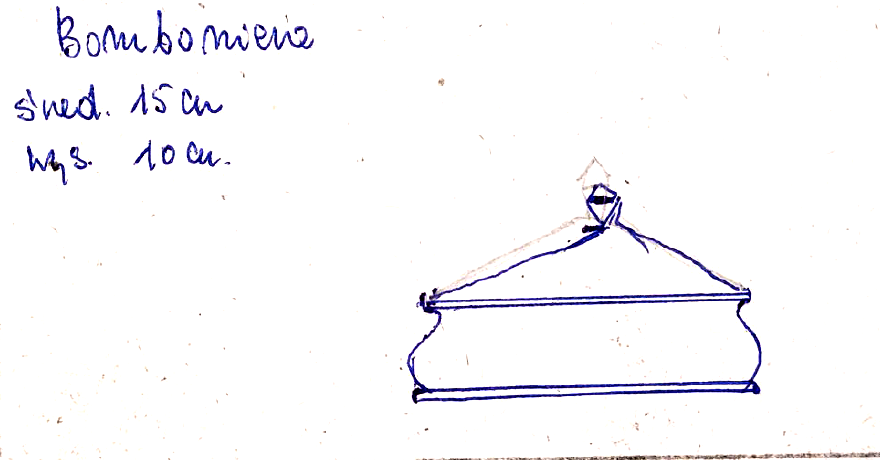 Bomboniera
śred. 15 cm
wys. 10 cm.